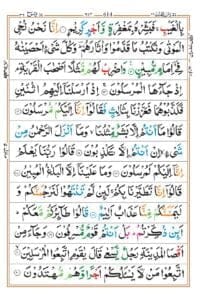 بِالْغَيْبِ ۖ فَبَشِّرْهُ بِمَغْفِرَةٍ وَأَجْرٍ كَرِيمٍ ۝ إِنَّا نَحْنُ نُحْيِ
الْمَوْتَىٰ وَنَكْتُبُ مَا قَدَّمُوا وَآثَارَهُمْ ۚ وَكُلَّ شَيْءٍ أَحْصَيْنَاهُ
فِي إِمَامٍ مُبِينٍ ۝ وَاضْرِبْ لَهُمْ مَثَلًا أَصْحَابَ الْقَرْيَةِ
إِذْ جَاءَهَا الْمُرْسَلُونَ ۝ إِذْ أَرْسَلْنَا إِلَيْهِمُ اثْنَيْنِ
فَكَذَّبُوهُمَا فَعَزَّزْنَا بِثَالِثٍ فَقَالُوا إِنَّا إِلَيْكُمْ مُرْسَلُونَ ۝
قَالُوا مَا أَنْتُمْ إِلَّا بَشَرٌ مِثْلُنَا ۙ وَمَا أَنْزَلَ الرَّحْمَٰنُ مِنْ
شَيْءٍ ۙ إِنْ أَنْتُمْ إِلَّا تَكْذِبُونَ ۝ قَالُوا رَبُّنَا يَعْلَمُ إِنَّا
إِلَيْكُمْ لَمُرْسَلُونَ ۝ وَمَا عَلَيْنَا إِلَّا الْبَلَاغُ الْمُبِينُ ۝
قَالُوا إِنَّا تَطَيَّرْنَا بِكُمْ ۖ لَئِنْ لَمْ تَنْتَهُوا لَنَرْجُمَنَّكُمْ وَ
لَيَمَسَّنَّكُمْ مِنَّا عَذَابٌ أَلِيمٌ ۝ قَالُوا طَائِرُكُمْ مَعَكُمْ ۚ
أَئِنْ ذُكِّرْتُمْ ۚ بَلْ أَنْتُمْ قَوْمٌ مُسْرِفُونَ ۝ وَجَاءَ مِنْ
أَقْصَا الْمَدِينَةِ رَجُلٌ يَسْعَىٰ قَالَ يَا قَوْمِ اتَّبِعُوا الْمُرْسَلِينَ ۝
اتَّبِعُوا مَنْ لَا يَسْأَلُكُمْ أَجْرًا وَهُمْ مُهْتَدُونَ ۝